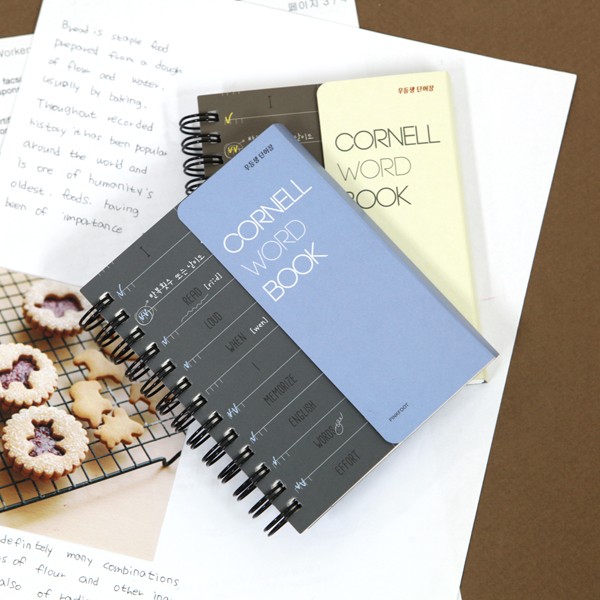 페이지 3 / 3
Bread is staple food
prepared from a dough
of flour and water,
usually by baking.
Throughout recorded
history it has been popular
around the world and
is one of humanity's
oldest foods. having
been of importance
우등생 단어장
CORNELL
WORD
BOOK
우등생 단어장
CORNELL
WORD
BOOK
PINKFOOT
I
READ [ri:d]
LOUD
WHEN [wen]
I
MEMORIZE
ENGLISH
WORDS
EFFORT
definitely many combinations
of flour and other
also of